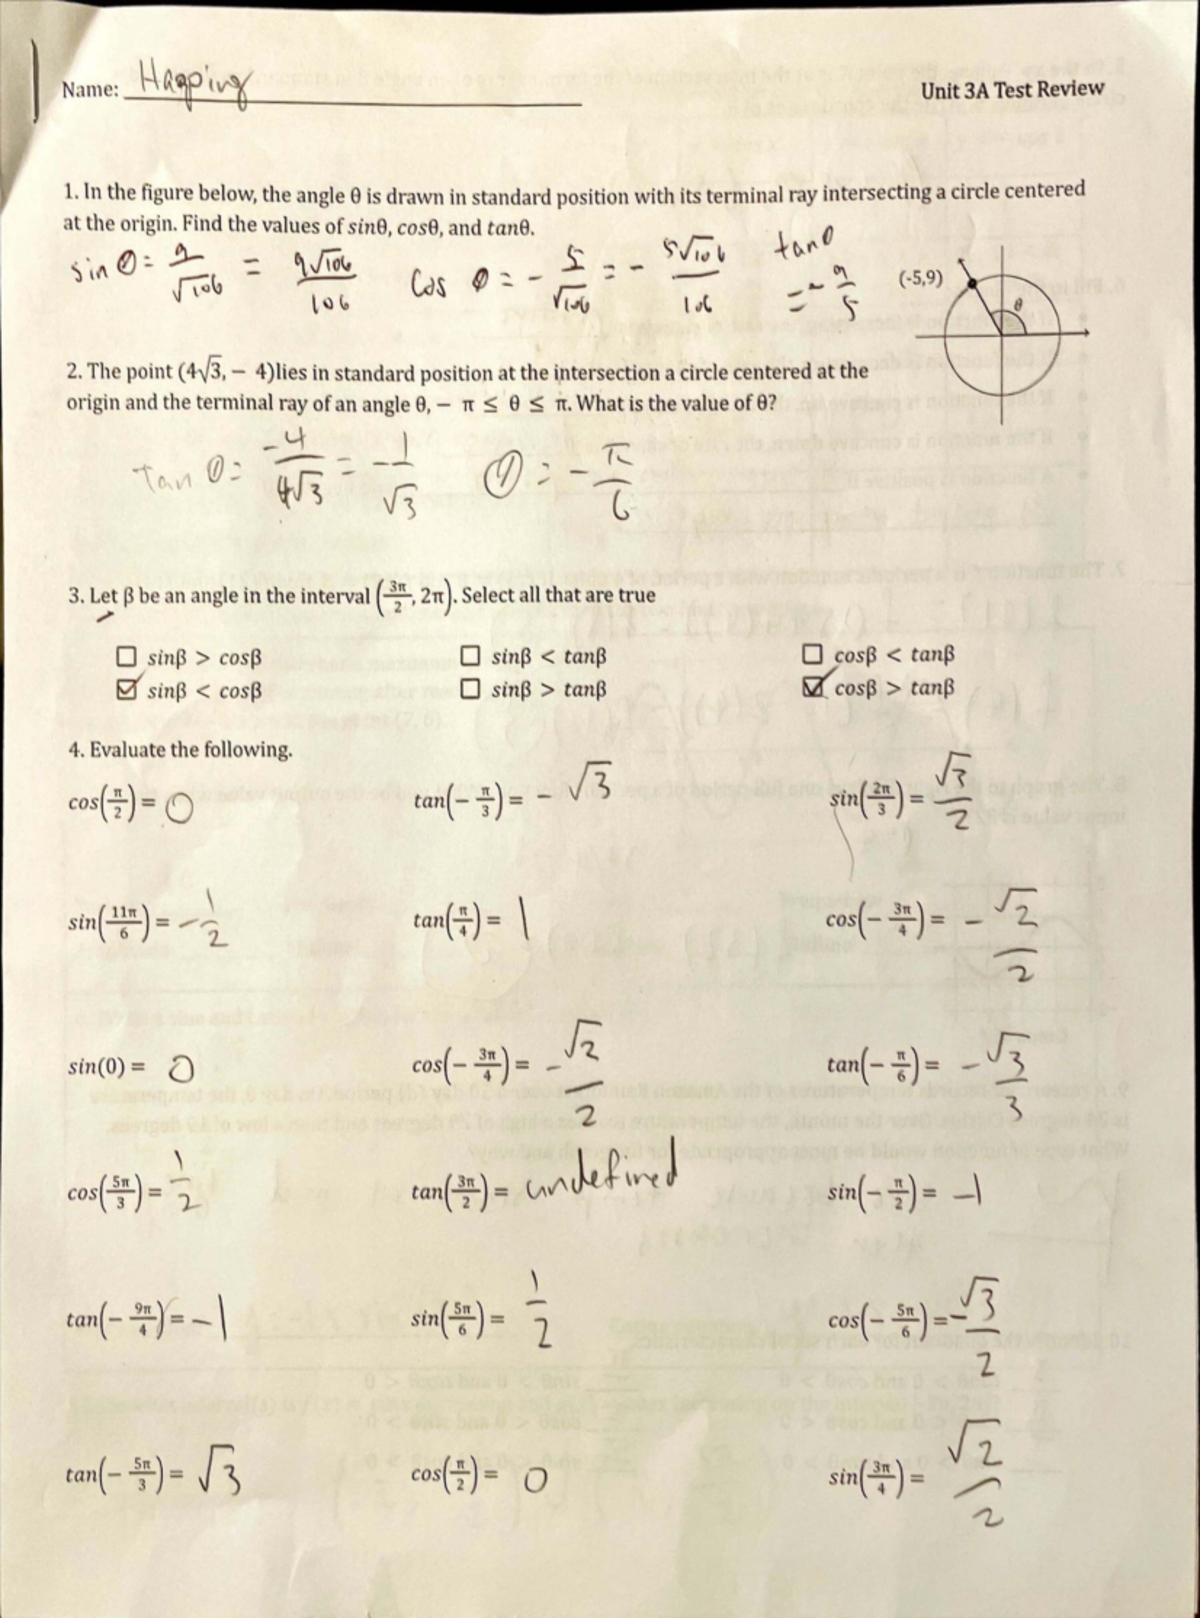 Name: Haoping
Unit 3A Test Review
1. In the figure below, the angle θ is drawn in standard position with its terminal ray intersecting a circle centered
at the origin. Find the values of sinθ, cosθ, and tanθ.
sin θ = 9/√106 = 9√106/106 cos θ = - 5/√106 = - 5√106/106 tanθ = - 9/5
(-5,9)
θ
2. The point (4√3, − 4)lies in standard position at the intersection a circle centered at the
origin and the terminal ray of an angle θ, − π ≤ θ ≤ π. What is the value of θ?
tan θ = -4/4√3 = -1/√3 θ = - π/6
3. Let β be an angle in the interval (3π/2, 2π). Select all that are true
☐ sinβ > cosβ ☐ sinβ < tanβ ☐ cosβ < tanβ
☑ sinβ < cosβ ☐ sinβ > tanβ ☑ cosβ > tanβ
4. Evaluate the following.
cos(π/2) = 0 tan(− π/3) = - √3 sin(2π/3) = √3/2
sin(11π/6) = - 1/2 tan(π/4) = 1 cos(− 3π/4) = - √2/2
sin(0) = 0 cos(− 3π/4) = - √2/2 tan(− π/6) = - √3/3
cos(5π/3) = 1/2 tan(3π/2) = undefined sin(− π/2) = -1
tan(− 9π/4) = -1 sin(5π/6) = 1/2 cos(− 5π/6) = - √3/2
tan(− 5π/3) = √3 cos(π/2) = 0 sin(3π/4) = √2/2